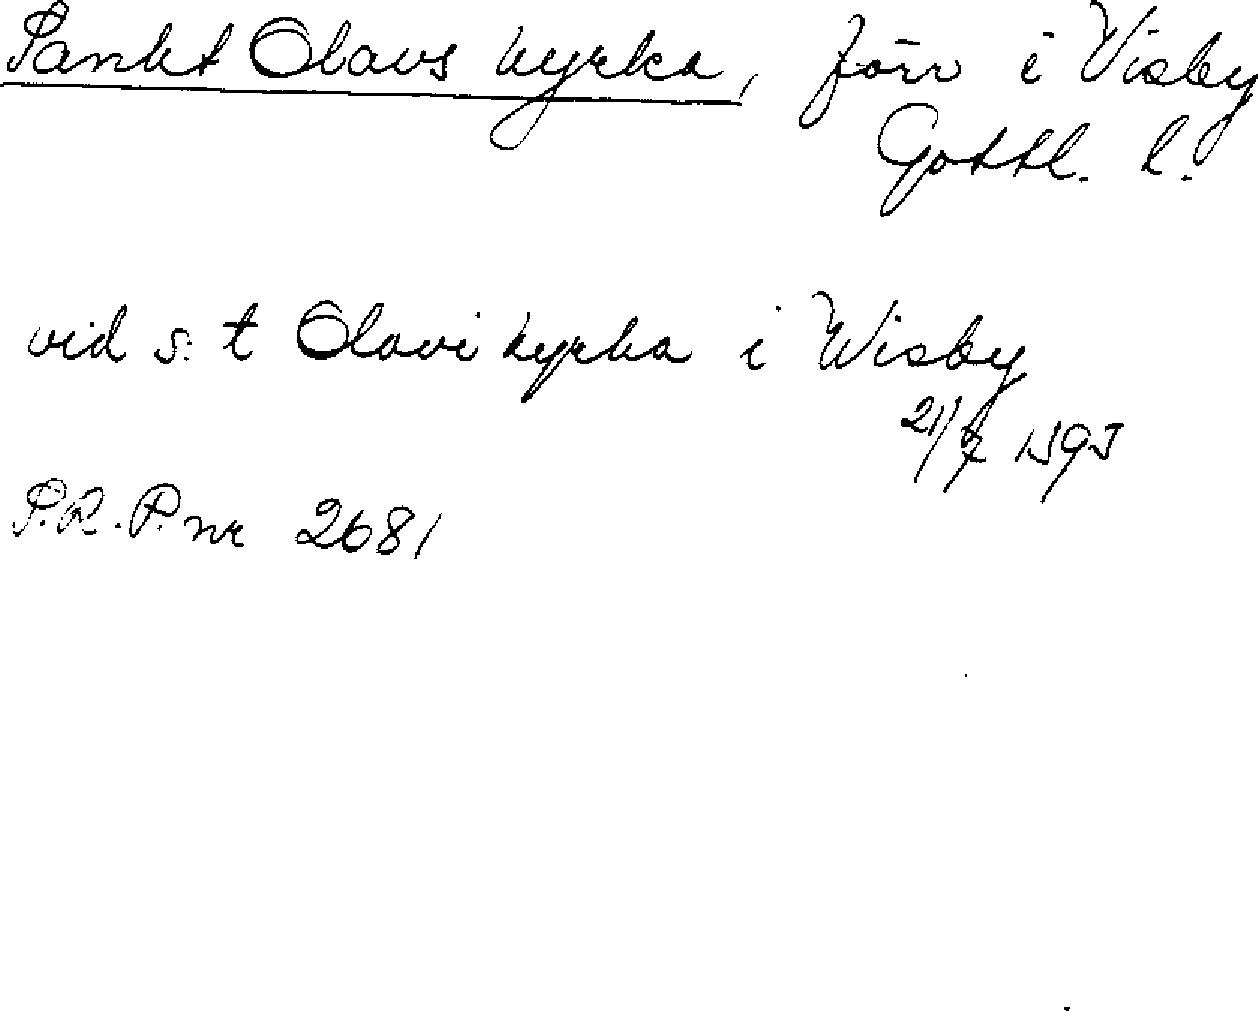 Sankt Olavs kyrka, förr i Visby
Gottl. l.
vid s:t Olavi kyrka i Wisby
21/7 1595
S.R.P. nr 2681